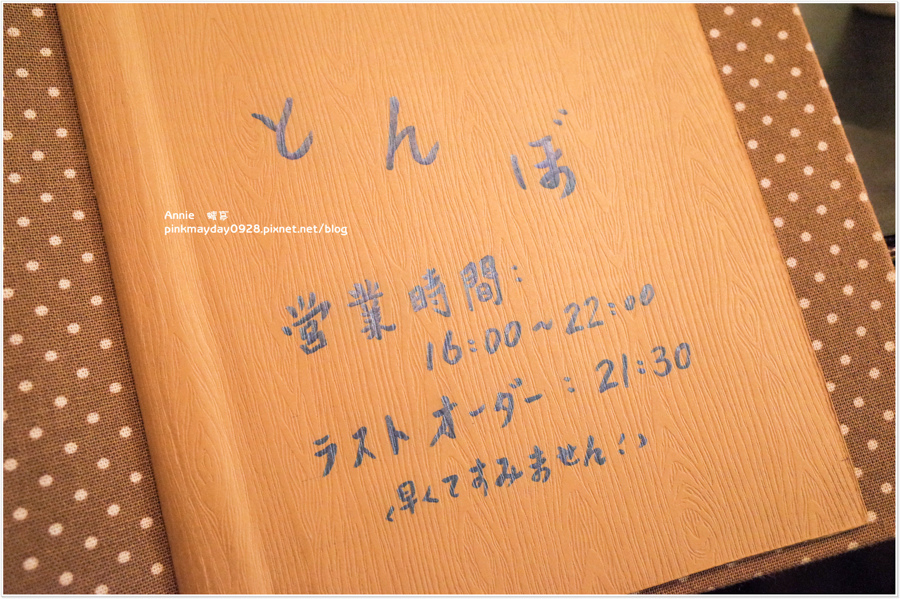 とんぼ
Annie 曖莳
pinkmayday0928.pixnet.net/blog
営業時間:
16:00~22:00
ラストオーダー:21:30
(早くてすみません:()